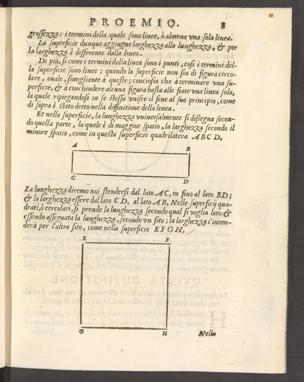 PROEMIO. 8
grossezza: i termini della quale sono linee, ò almeno vna sola linea.
La superficie dunque aggiugne larghezza alla lunghezza, & per
la larghezza è differente dalla linea.
Di più, si come i termini della linea sono i punti, così i termini del-
la superficie sono linee; quando la superficie non sia di figura circo-
lare, ouale, simigliante à queste; conciosia che à terminare vna su-
perficie, & à conchiudere alcuna figura basta alle fiate vna linea sola,
la quale ripiegandosi in se stessa vnisce il fine al suo principio, come
di sopra è stato detto nella diffinitione della linea.
Et nella superficie, la lunghezza vniuersalmente si disegna secon-
do quella parte, la quale è di maggior spatio, la larghezza secondo il
minore spatio, come in questa superficie quadrilatera ABCD,
A B
C D
La lunghezza diremo noi stendersi dal lato AC, in fino al lato BD;
& la larghezza essere dal lato CD, al lato AB, Nelle superficij qua-
drati, ò circolari, si prende la lunghezza secondo qual si voglia lato &
essendo assegnata la lunghezza, secondo vn sito; la larghezza s'inten-
derà per l'altro sito, come nella superficie EFGH,
E F
G H
Nelle